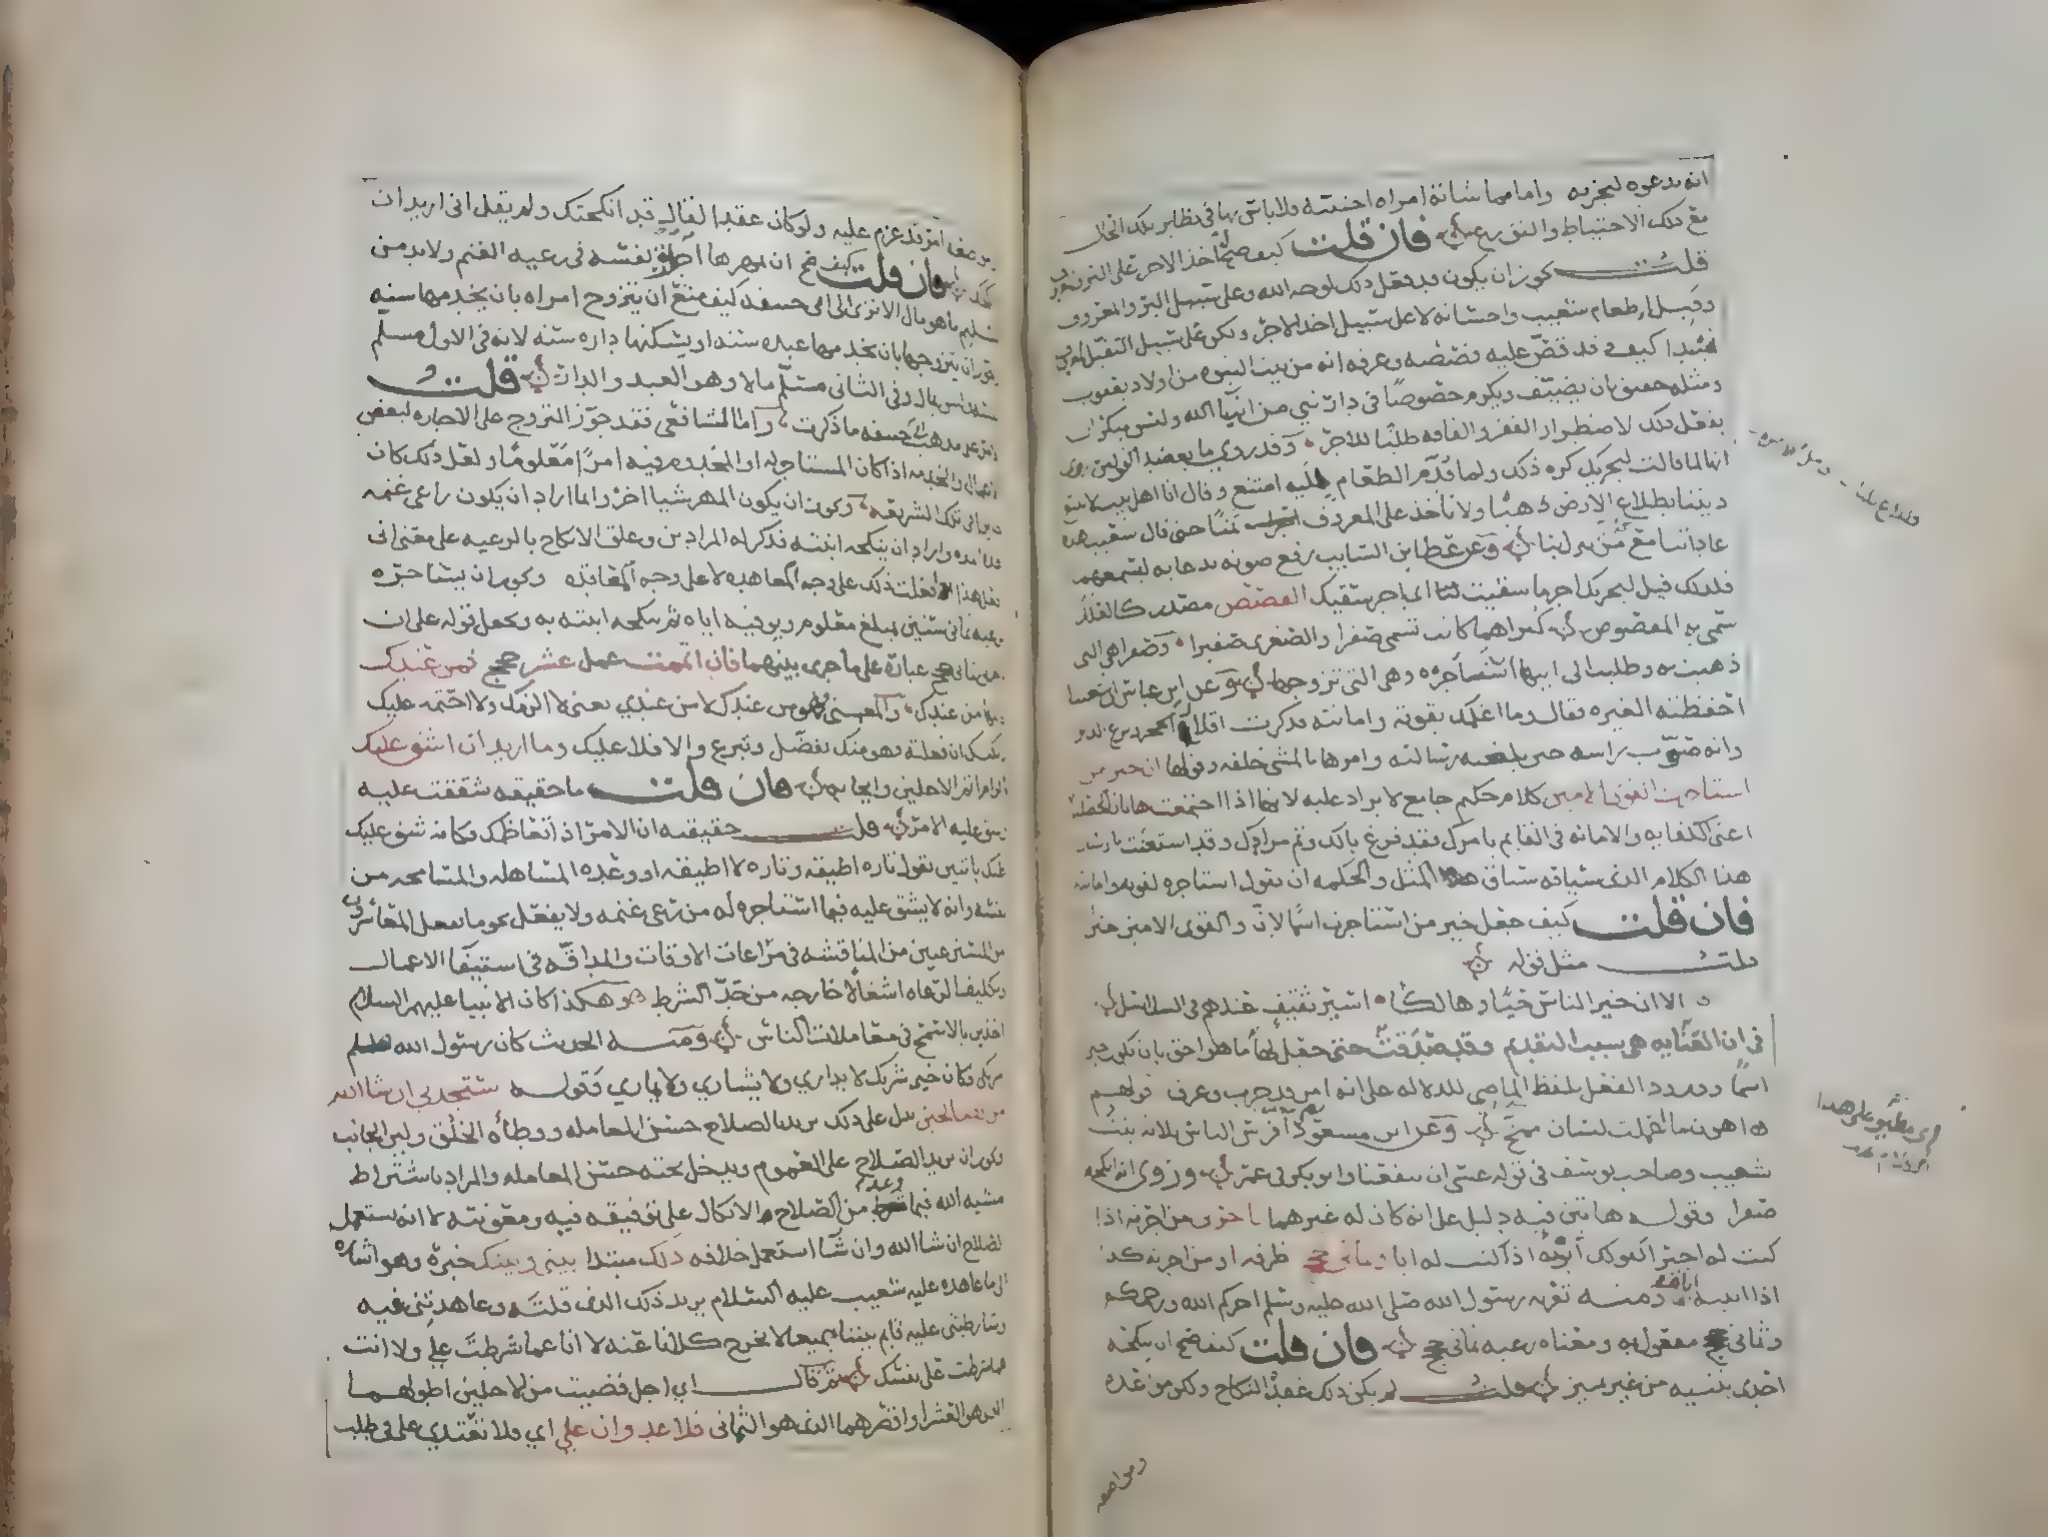 انه يدعوه ليجزيه واما مماشاته امراه اجنبيه فلا باس بها في نظاير تلك الحال
مع ذلك الاحتياط والتورع فان قلت كيف صح له اخذ الاجر على البر والمعروف
قلت يجوز ان يكون قد فعل ذلك لوجه الله وعلى سبيل البر والمعروف
وقبل اطعام شعيب واحسانه لا على سبيل اخذ الاجر ولكن على سبيل التقبل لمعروف
مبتدا كيف وقد قص عليه قصصه وعرفه انه من بيت النبوه من اولاد يعقوب
ومثله حقيق بان يضيف ويكرم خصوصا في دار نبي من انبيا الله وليس بمنكر ان
يفعل ذلك لاضطرار الفقر والفاقه طلبا للاجر وقد روي ما يعضد القولين روي
انها لما قالت ليجزيك كره ذلك ولما قدم اليه الطعام امتنع وقال انا اهل بيت لا نبيع
ديننا بطلاع الارض ذهبا ولا ناخذ على المعروف ثمنا حتى قال شعيب هذه
عادتنا مع من ينزل بنا وعن عطا بن السايب رفع صوته بدعايه ليسمعهما
فلذلك قيل ليجزيك اجر ما سقيت لنا اي جزا سقيك القصص مصدر كالعلل
سمي به المقصوص كبراهما كانت تسمى صفرا والصغرى صفيرا وصفرا هي التي
ذهبت به وطلبت الى ابيها ان يستاجره وهي التي تزوجها وعن ابن عباس ان شعيبا
احفظته الغيره فقال وما اعلمك بقوته وامانته فذكرت اقلال الحجر ونزع الدلو
وانه صوب راسه حين بلغته رسالته وامرها بالمشي خلفه وقولها ان خير من
استاجرت القوي الامين كلام حكيم جامع لا يزاد عليه لانه اذا اجتمعت هاتان الخصلتان
اعني الكفايه والامانه في القايم بامرك فقد فرغ بالك وتم مرادك وقد استغنت بارسال
هذا الكلام الذي سياقه سياق المثل والحكمه ان تقول استاجره لقوته وامانته
فان قلت كيف جعل خير من استاجرت اسما لان والقوي الامين خبرا
قلت مثل قوله
الا ان خير الناس حيا وهالكا اسير ثقيف عندهم في السلاسل
في ان العنايه هي سبب التقديم وقد صدقت حتى جعل لها ما هو احق بان يكون خبرا
اسما وورود الفعل بلفظ الماضي للدلاله على انه امر قد جرب وعرف قولهم
اهون ما اعملت لسان ممخ وعن ابن مسعود افرس الناس ثلاثه بنت
شعيب وصاحب يوسف في قوله عسى ان ينفعنا وابو بكر في عمر وروي انه انكحه
صفرا وقوله هاتين فيه دليل على انه كان له غيرهما تاجرني من اجرته اذا
كنت له اجيرا كقولك ابوته اذا كنت له ابا وثماني حجج ظرفه او من اجرته كذا
اذا اثبته اياه ومنه تعزيه رسول الله صلى الله عليه وسلم اجركم الله ورحمكم
وثماني حجج مفعول به ومعناه رعيه ثماني حجج فان قلت كيف صح ان ينكحه
احدى بنتيه من غير تمييز قلت لم يكن ذلك عقدا للنكاح ولكن مواعده
ومواصفه
امر قد عزم عليه ولو كان عقدا لقال قد انكحتك ولم يقل اني اريد ان
انكحك فان قلت كيف صح ان يمهرها اجاره نفسه في رعيه الغنم ولا بد من
تسليم ما هو مال الا ترى الى ابي حنيفه كيف منع ان يتزوج امراه بان يخدمها سنه
وجوز ان يتزوجها بان يخدمها عبده سنه او يسكنها داره سنه لانه في الاول مسلم
نفسه وليس بمال وفي الثاني مسلم مالا وهو العبد والدار قلت
الامر على مذهب ابي حنيفه ما ذكرت واما الشافعي فقد جوز التزوج على الاجاره لبعض
الاعمال والخدمه اذا كان المستاجر له او المخدوم فيه امرا معلوما ولعل ذلك كان
جايزا في تلك الشريعه ويجوز ان يكون المهر شيا اخر وانما اراد ان يكون راعي غنمه
هذه المده واراد ان ينكحه ابنته فذكر له المرادين وعلق الانكاح بالرعيه على معنى اني
افعل هذا اذا فعلت ذلك على وجه المعاهده لا على وجه المعاقده ويجوز ان يستاجره
لرعيه ثماني سنين بمبلغ معلوم ويوفيه اياه ثم ينكحه ابنته به ويجعل قوله على ان
تاجرني ثماني حجج عباره على ما جرى بينهما فان اتممت عمل عشر حجج فمن عندك
فاتمامه من عندك والمعنى فهو من عندك لا من عندي يعني لا الزمك ولا احتمه عليك
ولكنك ان فعلته فهو منك تفضل وتبرع والا فلا عليك وما اريد ان اشق عليك
بالزام اتم الاجلين وايجابه فان قلت ما حقيقه شققت عليه
وشق عليه الامر قلت حقيقته ان الامر اذا تعاظمك فكانه شق عليك
ظنك باثنين تقول تاره اطيقه وتاره لا اطيقه او وعده المساهله والمسامحه من
نفسه وانه لا يشق عليه فيما استاجره له من رعي غنمه ولا يفعل نحو ما يفعل المعاسرون
من المسترعين من المناقشه في مراعات الاوقات والمداقه في استيفا الاعمال
وتكليف الرعاه اشغالا خارجه من حد الشرط وهكذا كان الانبيا عليهم السلام
اخذين بالاسمح في معاملات الناس ومنه الحديث كان رسول الله صلعم
شريكي فكان خير شريك لا يداري ولا يشاري ولا يماري وقوله ستجدني ان شا الله
من الصالحين يدل على ذلك يريد بالصلاح حسن المعامله ووطاه الخلق ولين الجانب
ويجوز ان يريد الصلاح على العموم ويدخل تحته حسن المعامله والمراد باشتراط
مشيه الله فيما وعد من الصلاح الاتكال على توفيقه فيه ومعونته لا انه يستعمل
الصلاح ان شا الله وان شا استعمل خلافه ذلك مبتدا بيني وبينك خبره وهو اشاره
الى ما عاهده عليه شعيب عليه السلام يريد ذلك الذي قلته وعاهدتني فيه
وشارطتني عليه قايم بيننا جميعا لا نخرج كلانا عنه لا انا عما شرطت علي ولا انت
عما شرطت على نفسك ثم قال اي اجل قضيت من الاجلين اطولهما
الذي هو العشر او اقصرهما الذي هو الثماني فلا عدوان علي اي فلا تعتدي علي في طلب